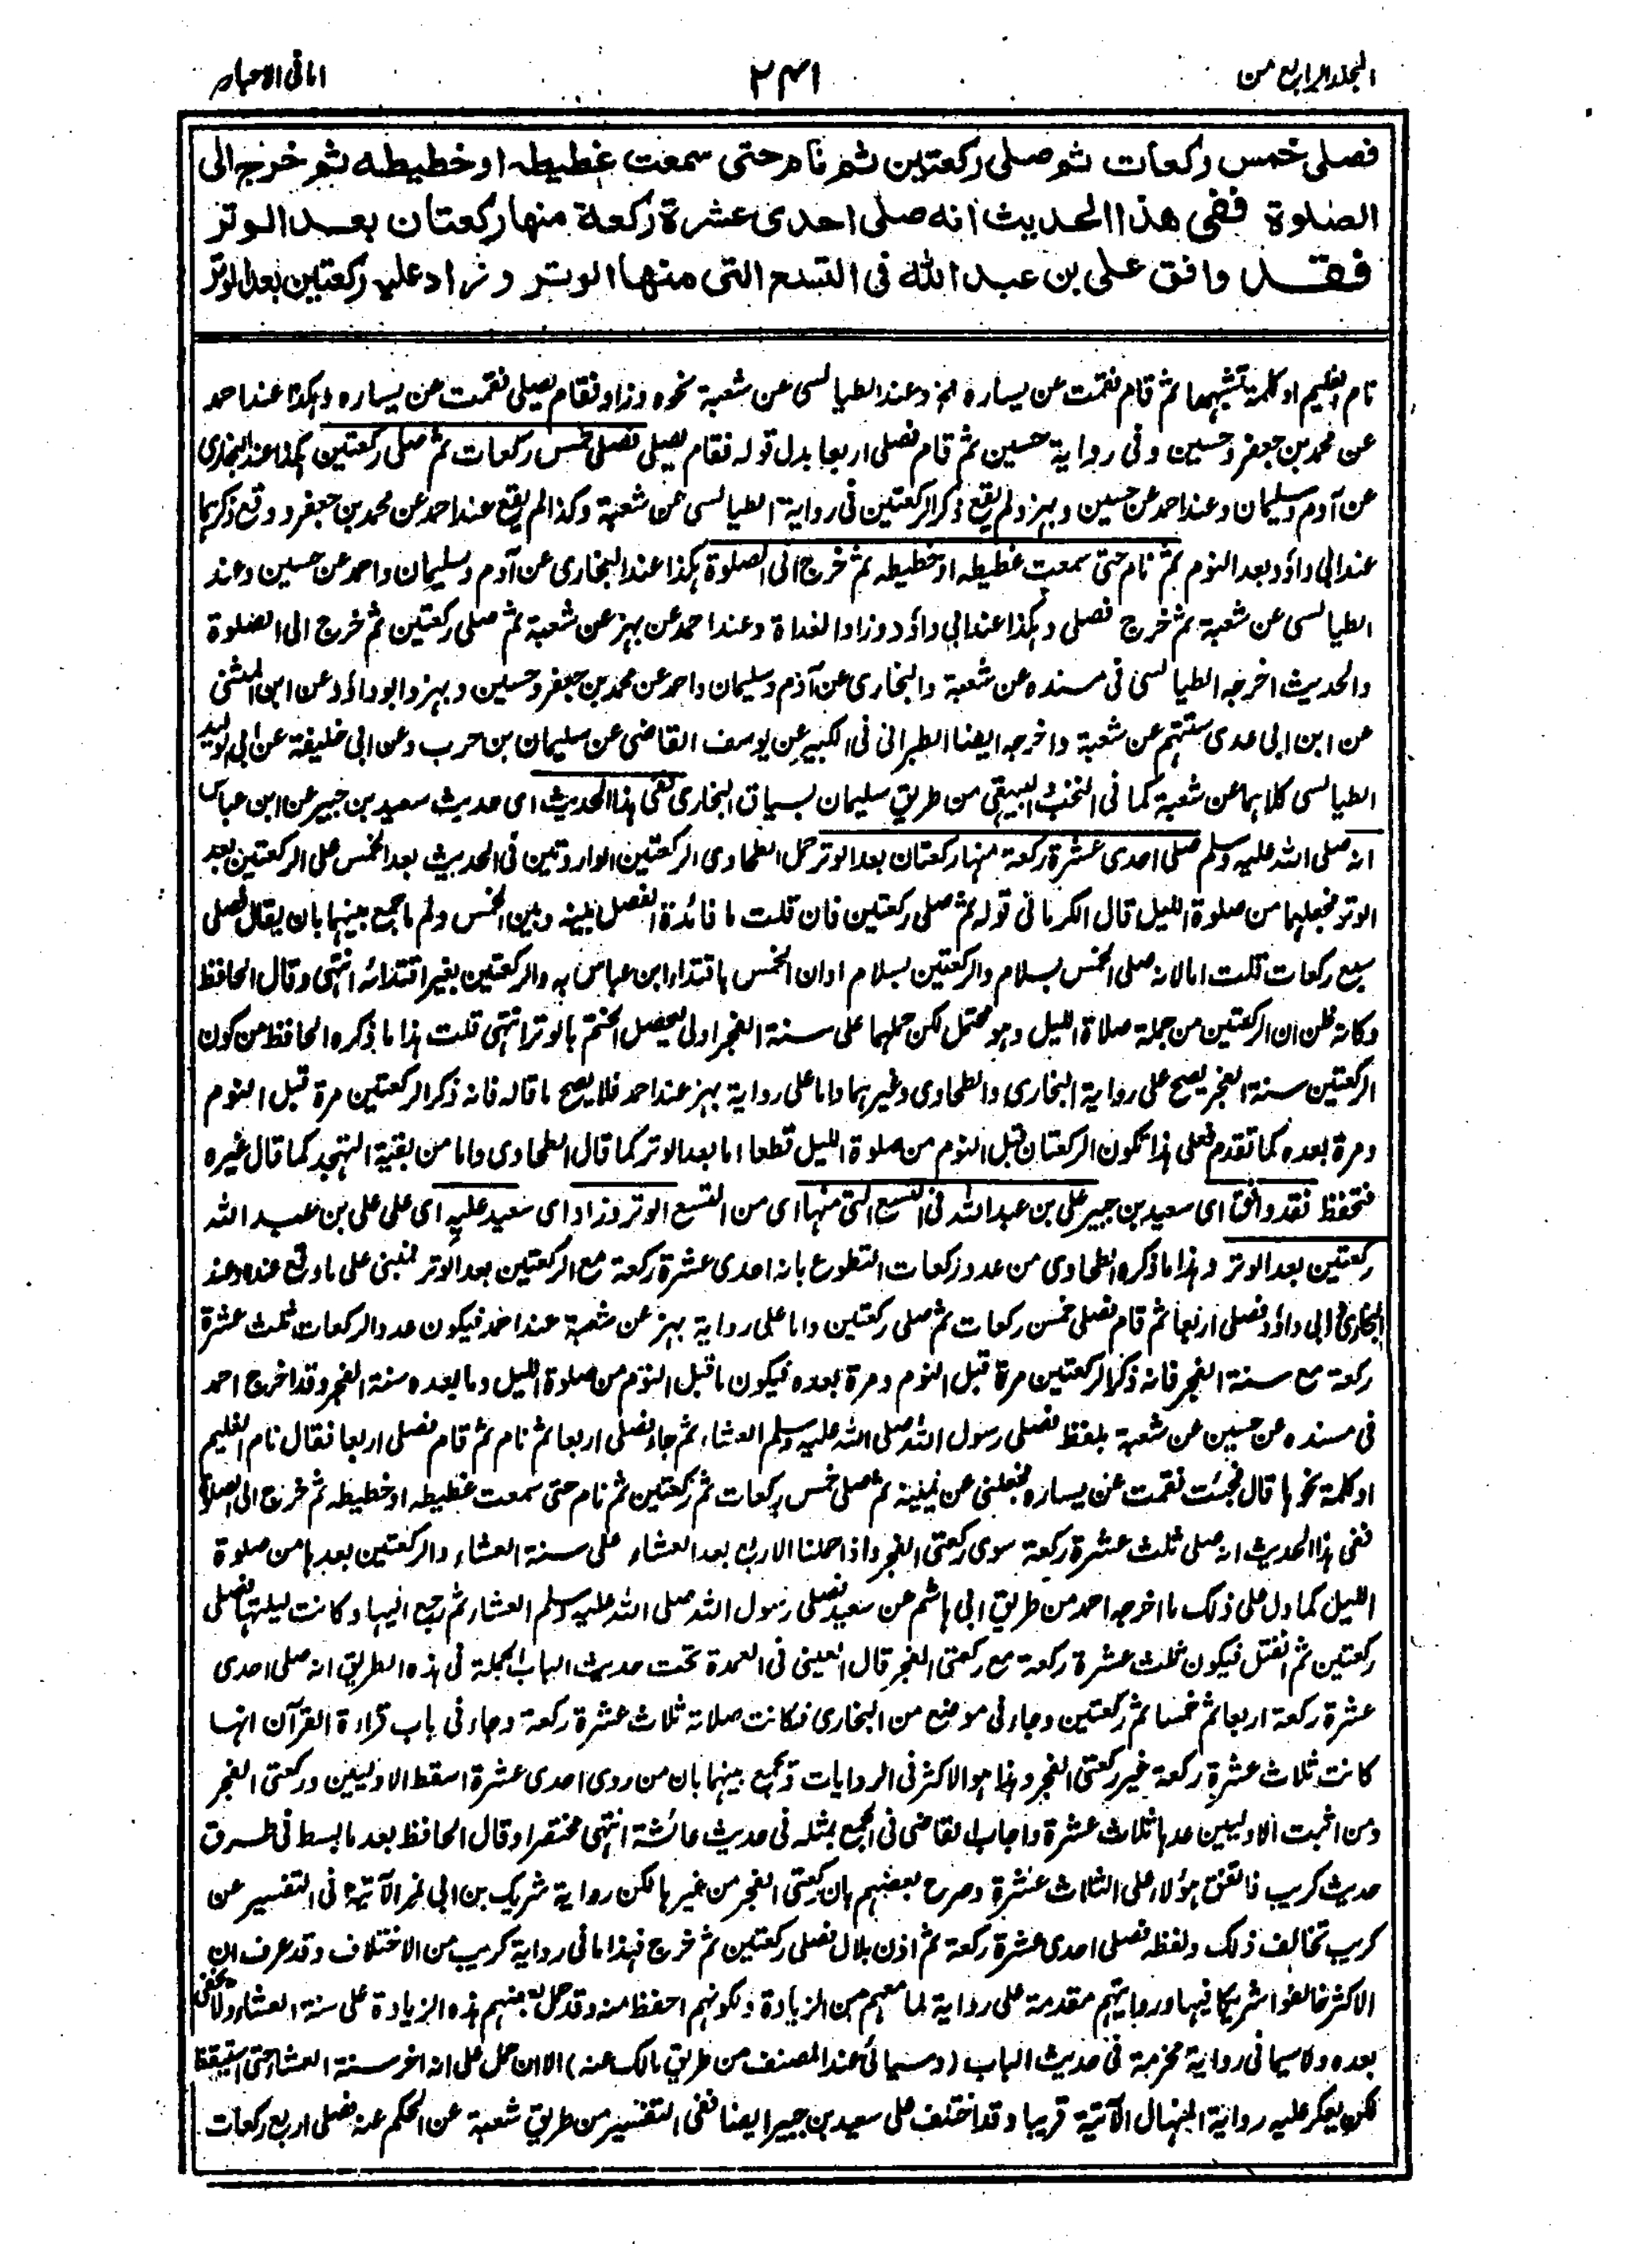 المجلد الرابع من
٢٤١
امانی الاحبار
فصلى خمس ركعات ثم صلى ركعتين ثم نام حتى سمعت غطيطه او خطيطه ثم خرج الى
الصلوة ففى هذا الحديث انه صلى احدى عشرة ركعة منها ركعتان بعد الوتر
فقد وافق على بن عبد الله فى التسع التى منها الوتر وزاد عليه ركعتين بعد الوتر
نام الغليم او كلمة تشبهها ثم قام فقمت عن يساره الخ وعند الطيالسى عن شعبة نحوه وزاد فقام يصلى فقمت عن يساره وهكذا عند احمد
عن محمد بن جعفر وحسين وفى رواية حسين ثم قام فصلى اربعا بدل قوله فقام يصلى فصلى خمس ركعات ثم صلى ركعتين هكذا عند البخارى
عن آدم وسليمان وعند احمد عن حسين وبهز ولم يقع ذكر الركعتين فى رواية الطيالسى عن شعبة وكذا لم يقع عند احمد عن محمد بن جعفر ووقع ذكرهما
عند ابى داؤد بعد النوم ثم نام حتى سمعت غطيطه او خطيطه ثم خرج الى الصلوة هكذا عند البخارى عن آدم وسليمان واحمد عن حسين وعند
الطيالسى عن شعبة ثم خرج فصلى وهكذا عند ابى داؤد وزاد الغداة وعند احمد عن بهز عن شعبة ثم صلى ركعتين ثم خرج الى الصلوة
والحديث اخرجه الطيالسى فى مسنده عن شعبة والبخارى عن آدم وسليمان واحمد عن محمد بن جعفر وحسين وبهز وابو داؤد عن ابن المثنى
عن ابن ابى عدى ستتهم عن شعبة واخرجه ايضا الطبرانى فى الكبير عن يوسف القاضى عن سليمان بن حرب وعن ابى خليفة عن ابى الوليد
الطيالسى كلاهما عن شعبة كما فى النخب والبيهقى من طريق سليمان بسياق البخارى ففى هذا الحديث اى حديث سعيد بن جبير عن ابن عباس
انه صلى الله عليه وسلم صلى احدى عشرة ركعة منها ركعتان بعد الوتر حمل الطحاوى الركعتين الواردتين فى الحديث بعد الخمس على الركعتين بعد
الوتر فجعلهما من صلوة الليل قال الكرمانى قوله ثم صلى ركعتين فان قلت ما فائدة الفصل بينه وبين الخمس ولم ما جمع بينهما بان يقال فصلى
سبع ركعات قلت اما لانه صلى الخمس بسلام والركعتين بسلام او ان الخمس باقتداء ابن عباس به والركعتين بغير اقتدائه انتهى وقال الحافظ
وكانه ظن ان الركعتين من جملة صلاة الليل وهو محتمل لكن حملهما على سنة الفجر اولى ليحصل الختم بالوتر انتهى قلت هذا ما ذكره الحافظ من كون
الركعتين سنة الفجر يصح على رواية البخارى والطحاوى وغيرهما واما على رواية بهز عند احمد فلا يصح ما قاله فانه ذكر الركعتين مرة قبل النوم
ومرة بعده كما تقدم فعلى هذا تكون الركعتان قبل النوم من صلوة الليل قطعا اما بعد الوتر كما قال الطحاوى واما من بقية التهجد كما قال غيره
فتحفظ فقد وافق اى سعيد بن جبير على بن عبد الله فى التسع التى منها اى من التسع الوتر وزاد اى سعيد عليه اى على على بن عبد الله
ركعتين بعد الوتر وهذا ما ذكره الطحاوى من عدد ركعات التطوع بانه احدى عشرة ركعة مع الركعتين بعد الوتر مبنى على ما وقع عنده وعند
البخارى وابى داؤد فصلى اربعا ثم قام فصلى خمس ركعات ثم صلى ركعتين واما على رواية بهز عن شعبة عند احمد فيكون عدد الركعات ثلث عشرة
ركعة مع سنة الفجر فانه ذكر الركعتين مرة قبل النوم ومرة بعده فيكون ما قبل النوم من صلوة الليل وما بعده سنة الفجر وقد اخرج احمد
فى مسنده عن حسين عن شعبة بلفظ فصلى رسول الله صلى الله عليه وسلم العشاء ثم جاء فصلى اربعا ثم نام ثم قام فصلى اربعا فقال نام الغليم
او كلمة نحوها قال فجئت فقمت عن يساره فجعلنى عن يمينه ثم صلى خمس ركعات ثم ركعتين ثم نام حتى سمعت غطيطه او خطيطه ثم خرج الى الصلوة
ففى هذا الحديث انه صلى ثلث عشرة ركعة سوى ركعتى الفجر واذا حملنا الاربع بعد العشاء على سنة العشاء والركعتين بعدها من صلوة
الليل كما دل على ذلك ما اخرجه احمد من طريق ابى هاشم عن سعيد فصلى رسول الله صلى الله عليه وسلم العشاء ثم رجع اليها وكانت ليلتها فصلى
ركعتين ثم انفتل فيكون ثلث عشرة ركعة مع ركعتى الفجر قال العينى فى العمدة تحت حديث الباب الجملة فى هذه الطريق انه صلى احدى
عشرة ركعة اربعا ثم خمسا ثم ركعتين وجاء فى موضع من البخارى فكانت صلاته ثلاث عشرة ركعة وجاء فى باب قراءة القرآن انها
كانت ثلاث عشرة ركعة غير ركعتى الفجر وهذا هو الاكثر فى الروايات ويجمع بينهما بان من روى احدى عشرة اسقط الاوليين وركعتى الفجر
ومن اثبت الاوليين عدها ثلاث عشرة واجاب القاضى فى الجمع بمثله فى حديث عائشة انتهى مختصرا وقال الحافظ بعد ما بسط فى طرق
حديث كريب فاتفق هؤلاء على الثلاث عشرة وصرح بعضهم بان ركعتى الفجر من غيرها لكن رواية شريك بن ابى نمر الآتية فى التفسير عن
كريب تخالف ذلك ولفظه فصلى احدى عشرة ركعة ثم اذن بلال فصلى ركعتين ثم خرج فهذا ما فى رواية كريب من الاختلاف وقد عرف ان
الاكثر خالفوا شريكا فيها وروايتهم مقدمة على رواية لما معهم من الزيادة ولكونهم احفظ منه وقد حمل بعضهم هذه الزيادة على سنة العشاء ولا يخفى
بعده ولا سيما فى رواية مخرمة فى حديث الباب (وسيأتى عند المصنف من طريق مالك عنه) الا ان حمل على انه اخر سنة العشاء حتى استيقظ
لكن يعكر عليه رواية المنهال الآتية قريبا وقد اختلف على سعيد بن جبير ايضا ففى التفسير من طريق شعبة عن الحكم عنه فصلى اربع ركعات